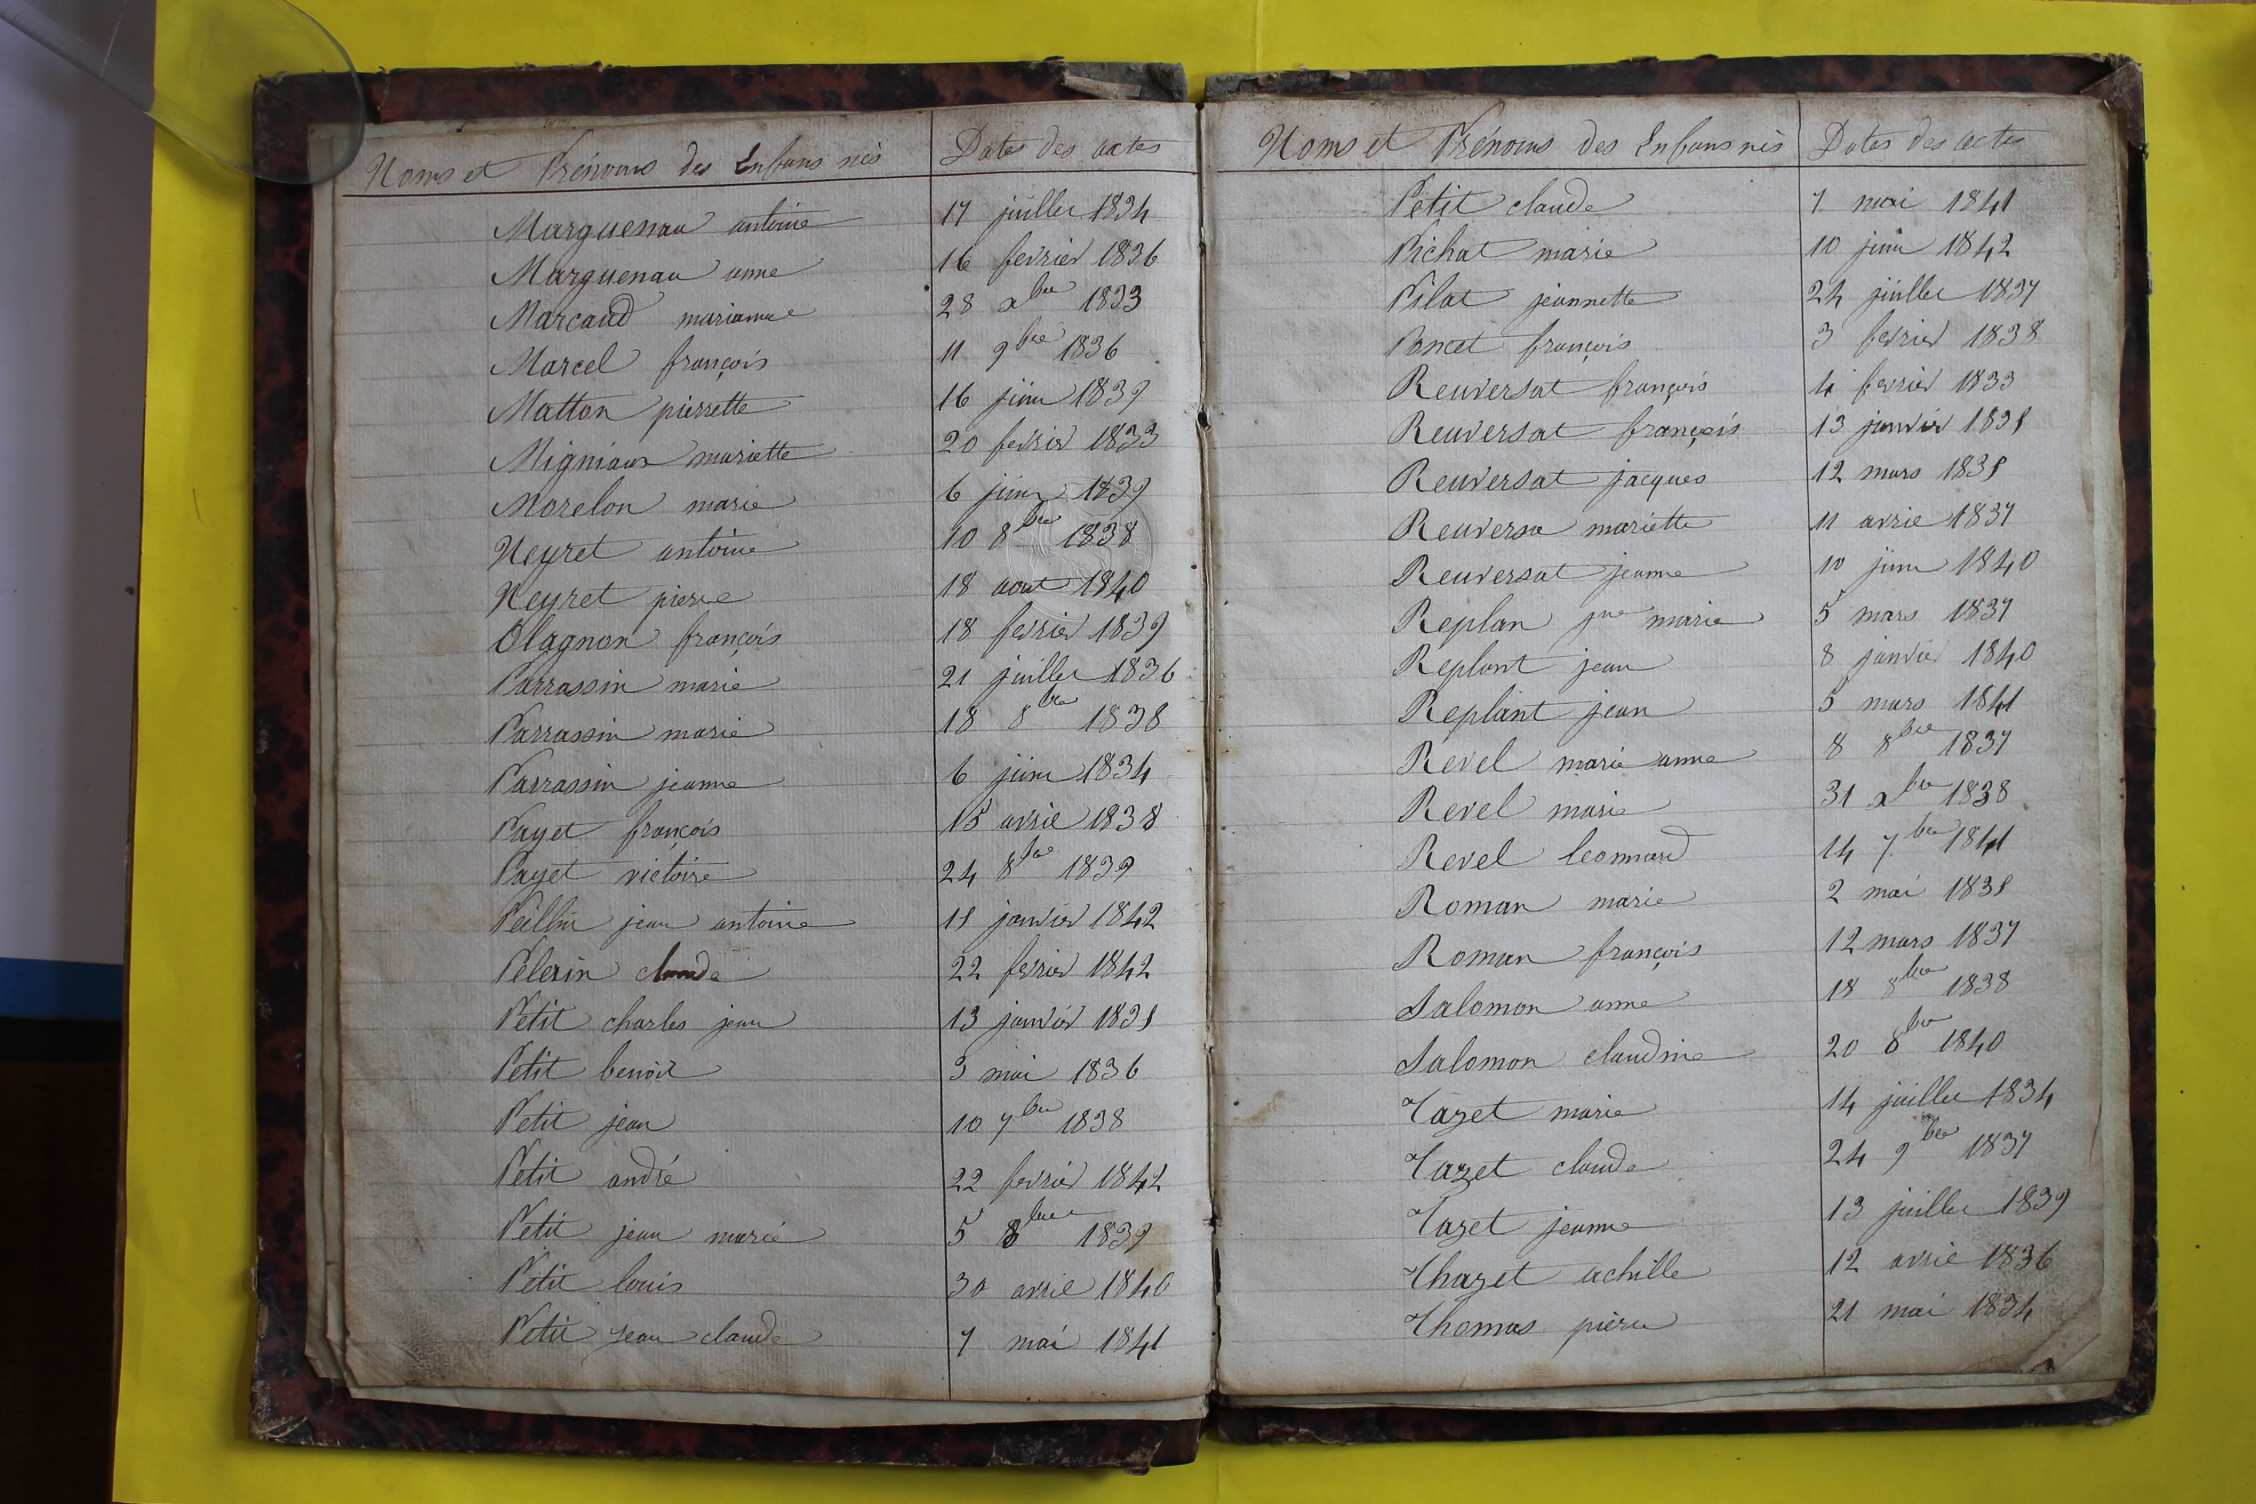 Noms et Prénoms des Enfans nés Dates des actes
Marguenau antoine 17 juillet 1834
Marguenau anne 16 fevrier 1836
Marcaud marianne 28 xbre 1833
Marcel françois 11 9bre 1836
Matton pierrette 16 juin 1839
Migniaux mariette 20 fevrier 1833
Morelon marie 6 juin 1839
Neyret antoine 10 8bre 1838
Neyret pierre 18 aout 1840
Olagnon françois 18 fevrier 1839
Parrassin marie 21 juillet 1836
Parrassin marie 18 8bre 1838
Parrassin jeanne 6 juin 1834
Payet françois 15 avril 1838
Payet victoire 24 8bre 1839
Peillu jean antoine 11 janvier 1842
Pelerin claude 22 fevrier 1842
Petit charles jean 13 janvier 1835
Petit benoit 3 mai 1836
Petit jean 10 7bre 1838
Petit andré 22 fevrier 1842
Petit jean marie 5 8bre 1839
Petit louis 30 avril 1840
Petit jean claude 7 mai 1841
Noms et Prénoms des Enfans nés Dates des actes
Petit claude 7 mai 1841
Pichat marie 10 juin 1842
Pilat jeannette 24 juillet 1837
Poncet françois 3 fevrier 1838
Reuversat françois 4 fevrier 1833
Reuversat françois 13 janvier 1835
Reuversat jacques 12 mars 1835
Reuversa mariette 11 avril 1837
Reuversat jeanne 10 juin 1840
Replan jne marie 5 mars 1837
Replant jean 8 janvier 1840
Replant jean 5 mars 1841
Revel marie anne 8 8bre 1837
Revel marie 31 xbre 1838
Revel leonnard 14 7bre 1841
Roman marie 2 mai 1835
Roman françois 12 mars 1837
Salomon anne 18 8bre 1838
Salomon claudine 20 8bre 1840
Tazet marie 14 juillet 1834
Tazet claude 24 9bre 1837
Tazet jeanne 13 juillet 1839
Thazet achille 12 avril 1836
Thomas pierre 21 mai 1834